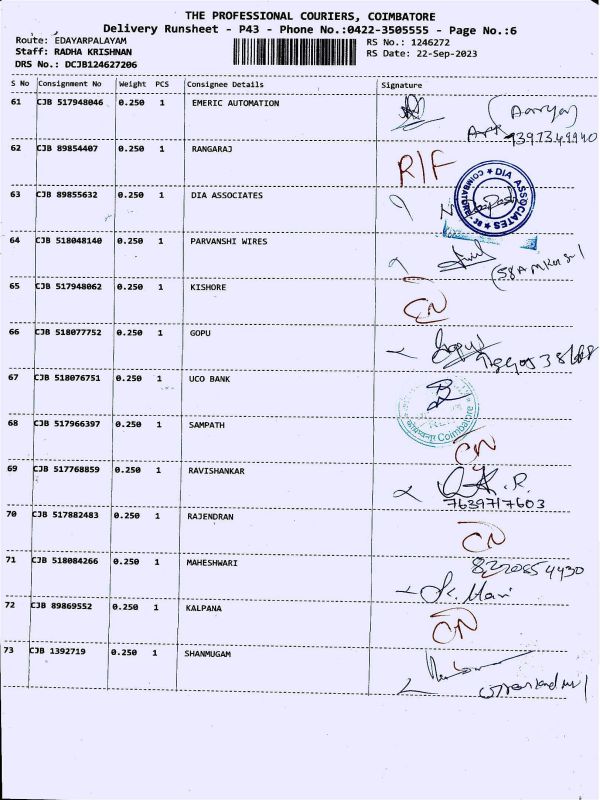 THE PROFESSIONAL COURIERS, COIMBATORE
Delivery Runsheet - P43 - Phone No.:0422-3505555 - Page No.:6
Route: EDAYARPALAYAM
RS No.: 1246272
Staff: RADHA KRISHNAN
RS Date: 22-Sep-2023
DRS No.: DCJB124627206
S No Consignment No Weight PCS Consignee Details Signature
61 CJB 517948046 0.250 1 EMERIC AUTOMATION
62 CJB 89854407 0.250 1 RANGARAJ R/F
63 CJB 89855632 0.250 1 DIA ASSOCIATES
DIA ASSOCIATES ★ COIMBATORE
64 CJB 518048140 0.250 1 PARVANSHI WIRES
65 CJB 517948062 0.250 1 KISHORE CN
66 CJB 518077752 0.250 1 GOPU Gopu
67 CJB 518076751 0.250 1 UCO BANK
Coimbatore
68 CJB 517966397 0.250 1 SAMPATH CN
69 CJB 517768859 0.250 1 RAVISHANKAR
7639717603
70 CJB 517882483 0.250 1 RAJENDRAN CN
71 CJB 518084266 0.250 1 MAHESHWARI 8220854430
72 CJB 89869552 0.250 1 KALPANA CN
73 CJB 1392719 0.250 1 SHANMUGAM